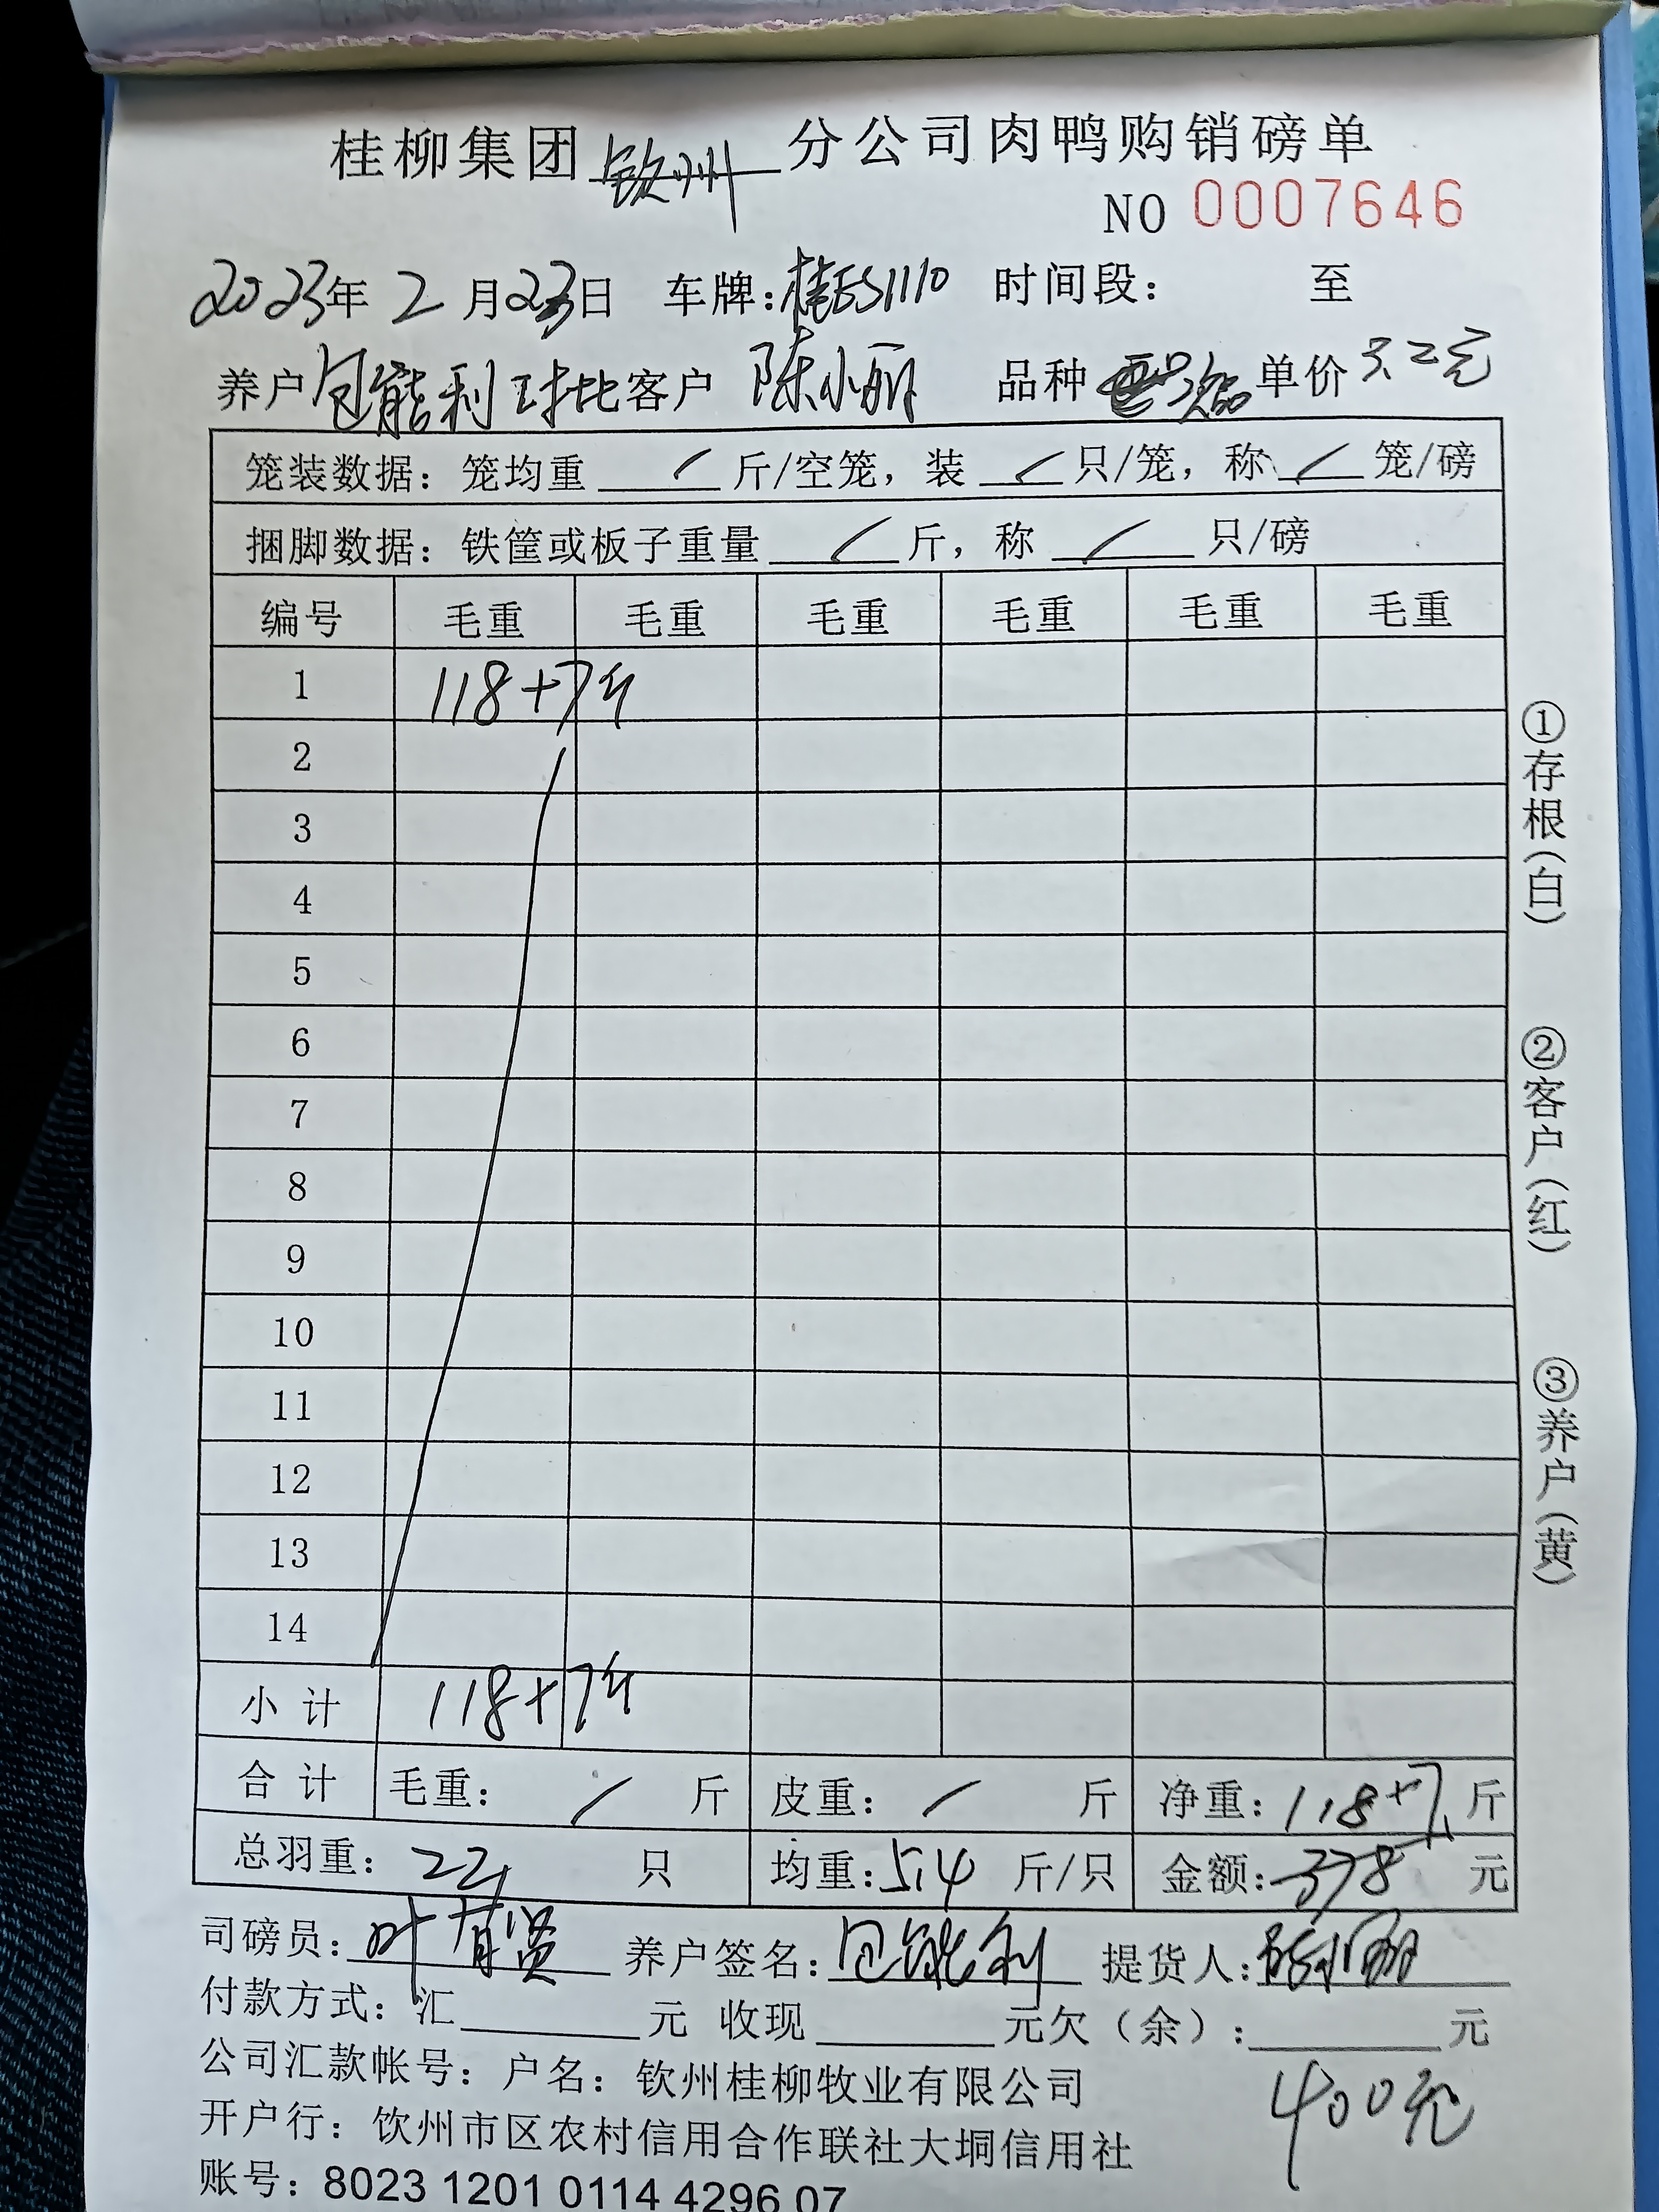 桂柳集团 钦州 分公司肉鸭购销磅单
NO 0007646
2023年 2 月 23日 车牌:桂ES1110 时间段: 至
养户 包能利 对比 客户 陈小丽 品种 单价 3.2元
笼装数据:笼均重 / 斤/空笼,装 / 只/笼,称 / 笼/磅
捆脚数据:铁筐或板子重量 / 斤,称 / 只/磅
编号 毛重 毛重 毛重 毛重 毛重 毛重
1 118+7斤
2
3
4
5
6
7
8
9
10
11
12
13
14
小计 118+7斤
合计 毛重: / 斤 皮重: / 斤 净重:118+7 斤
总羽重: 22 只 均重:5.4 斤/只 金额:378 元
司磅员:叶有贤 养户签名:包能利 提货人:陈小丽
付款方式:汇 元 收现 元欠(余): 元
公司汇款帐号:户名:钦州桂柳牧业有限公司
400元
开户行:钦州市区农村信用合作联社大垌信用社
账号:8023 1201 0114 4296 07
①存根(白)
②客户(红)
③养户(黄)